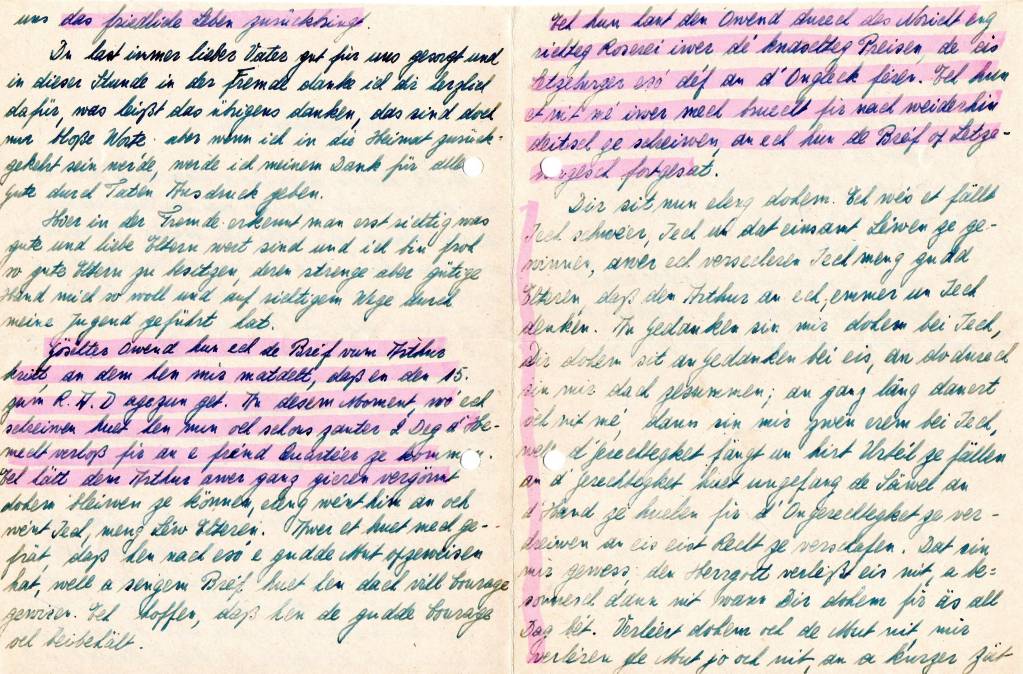 uns das friedliche Leben zurückbringt.
Du hast immer lieber Vater gut für uns gesorgt und
in dieser Stunde in der Fremde danke ich dir herzlich
dafür, was heißt das übrigens danken, das sind doch
nur bloße Worte. aber wenn ich in die Heimat zurück-
gekehrt sein werde, werde ich meinem Dank für alles
Gute durch Taten Ausdruck geben.
Hier in der Fremde erkennt man erst richtig was
gute und liebe Eltern wert sind und ich bin froh
so gute Eltern zu besitzen, deren strenge aber gütige
Hand mich so woll und auf richtigem Wege durch
meine Jugend geführt hat.
Göschter Owend hun ech de Bréf vum Arthur
krit, an dem hen mir matdelt, daß en den 15.
zum R. A. D agezun get. An desem Moment, wo' ech
schreiwen huet hen nun och schons zanter 2 Deg d'He-
mecht verloß fir an e frend Quartéer ze kommen.
Ech hätt dem Arthur awer ganz gieren vergönnt
dohem bleiwen ze können, eleng wéint him an och
wéint Iech, meng léw Elteren. Awer et huet mech ge-
frät, daß hen nach esó e gudde Mut opzeweisen
hat, well a sengem Bréf huet hen dach vill Courage
gewisen. Ech hoffen, daß hen de gudde Courage
och beibehält.
Ech hun haut den Owend durech des Noricht eng
richteg Roserei iwer dé knaschteg Preisen, dé eis
Letzeburger esó déf an d'Ongleck féren. Ech hun
et nit mé iwer mech bruecht fir nach weiderhin
deitsch ze schreiwen, an ech hun de Bréf op Letze-
burgesch fortgesat.
Dir sit nun eleng dohem. Ech wés et fällt
Iech schwéer, Iech un dat einsamt Liewen ze ge-
winnen, awer ech verséecheren Iech meng gudd
Elteren, daß den Arthur an ech, emmer un Iech
denken. An Gedanken sin mir dohem bei Iech,
Dir dohem sit an Gedanken bei eis, an dodurech
sin mir dach zesummen; an ganz läng dauert
et och nit mé, dann sin mir zwén erem bei Iech,
well d'Gerechtegket fängt un hirt Urtél ze fällen
an d'Gerechtegket huet ugefang de Säwel an
d'Hand ze huelen fir d'Ongerechtegket ze ver-
dreiwen an eis eist Recht ze verschafen. Dat sin
mir gewess: den Herrgott verléßt eis nit, a be-
sonnesch dann nit wann Dir dohem fir äs all
Dag bét. Verléert dohem och de Mut nit, mir
verléren de Mut jo och nit, an a kurzer Zäit